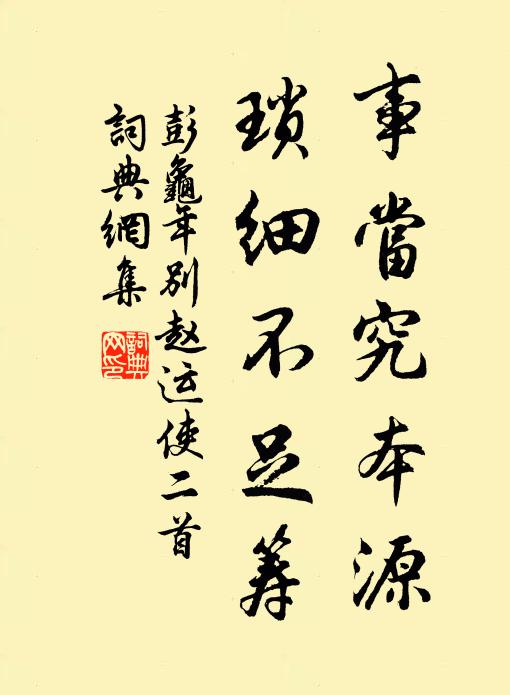 事當究本源
瑣細不足筭
彭龜年別赵运使二首
詞典網集
詞典網印